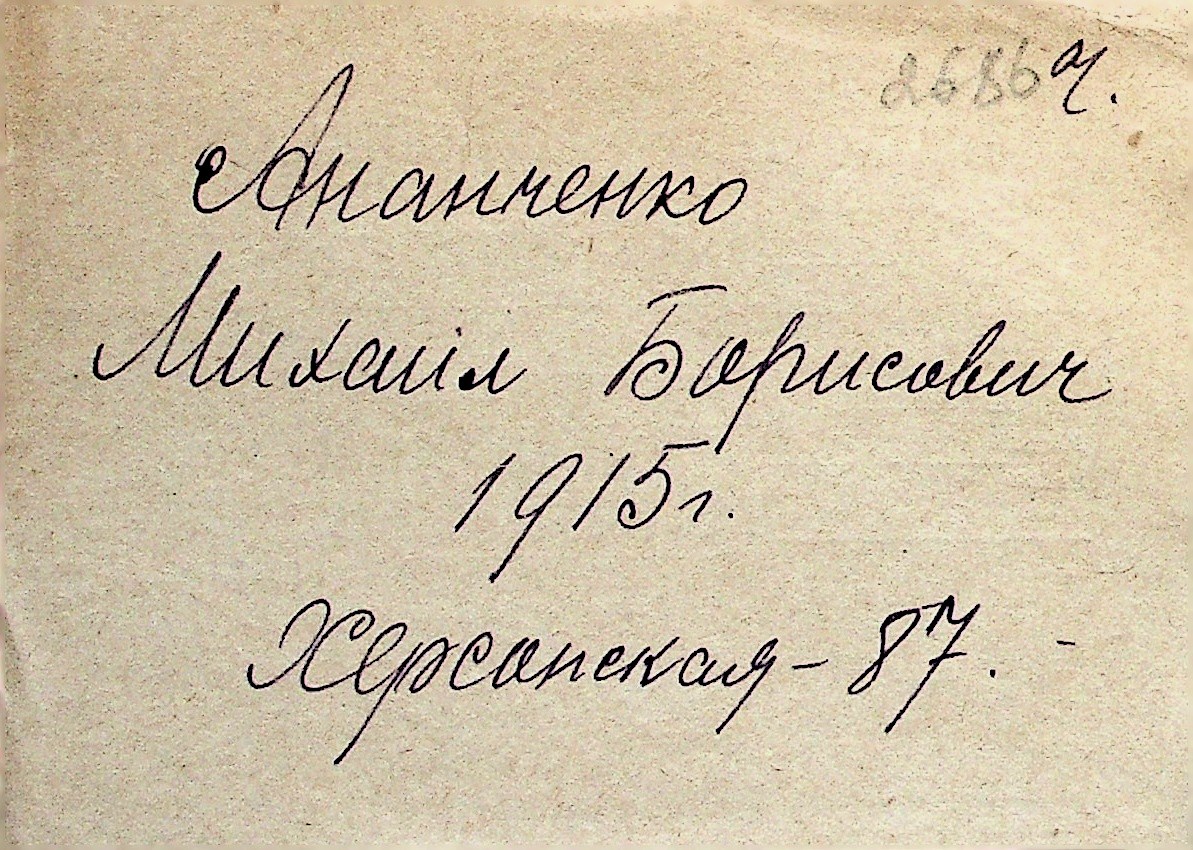 2686 Ч.
Ананченко
Михаіл Борисович
1915 г.
Херсонская - 87.